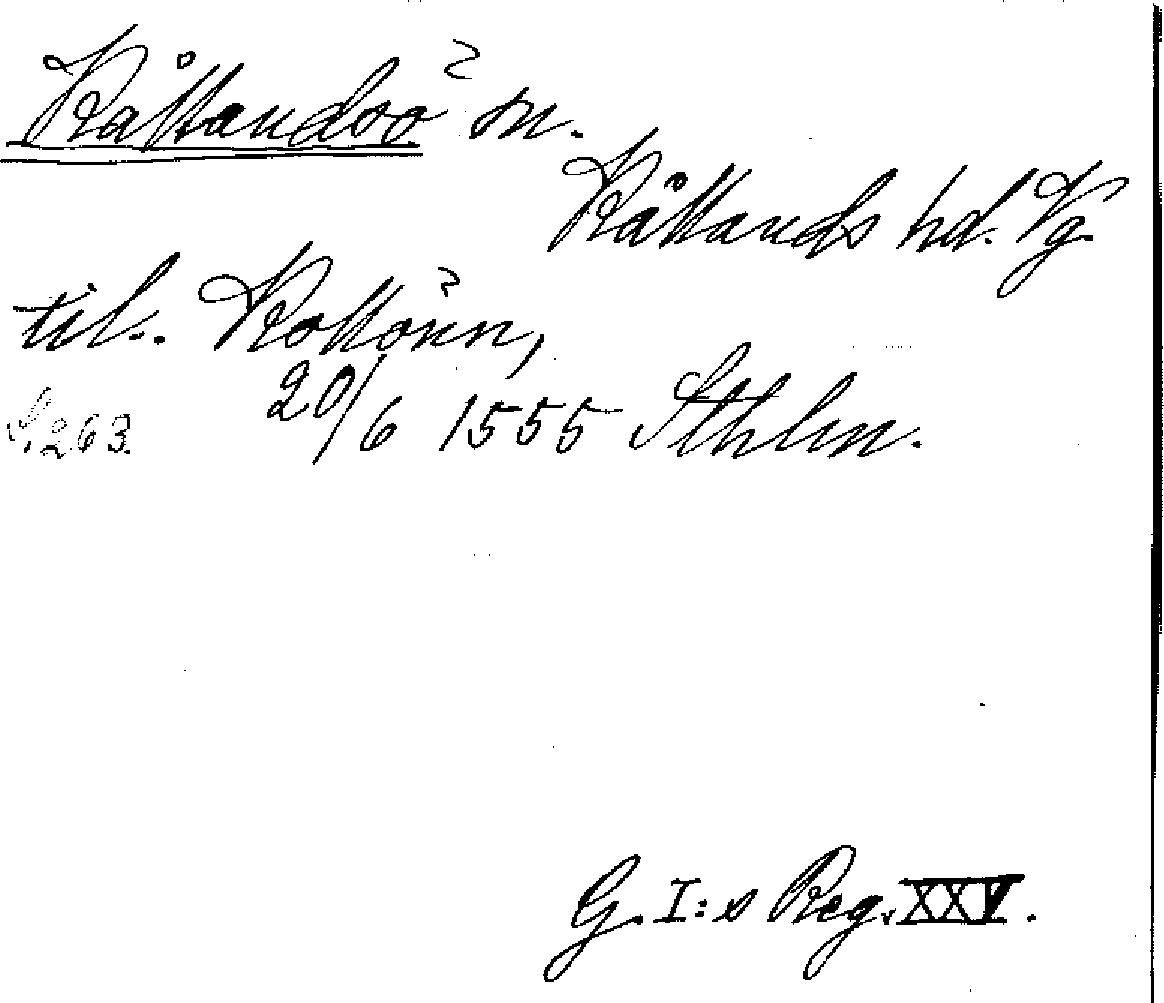 Kållandsö sn.
Kållands hd. Vg.
til. Kollöön,
S. 263. 20/6 1555 Sthlm.
G. I:s Reg. XXV.